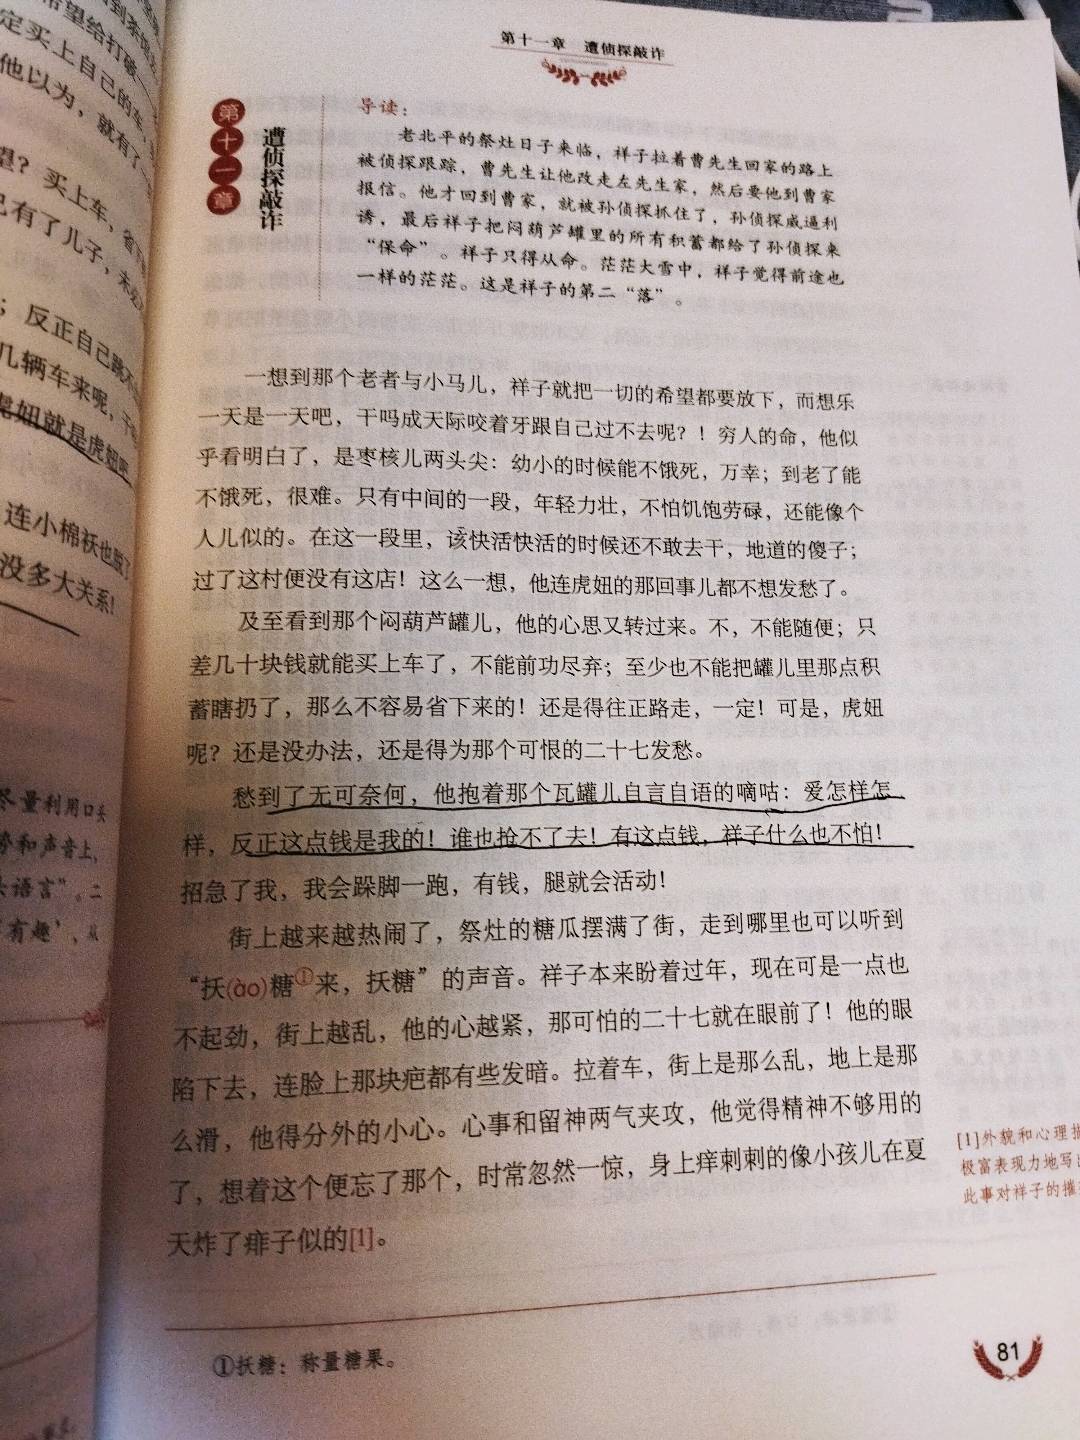 第十一章 遭侦探敲诈
第十一章
遭侦探敲诈
导读：
老北平的祭灶日子来临，祥子拉着曹先生回家的路上
被侦探跟踪，曹先生让他改走左先生家，然后要他到曹家
报信。他才回到曹家，就被孙侦探抓住了，孙侦探威逼利
诱，最后祥子把闷葫芦罐里的所有积蓄都给了孙侦探来
“保命”。祥子只得从命。茫茫大雪中，祥子觉得前途也
一样的茫茫。这是祥子的第二“落”。
一想到那个老者与小马儿，祥子就把一切的希望都要放下，而想乐
一天是一天吧，干吗成天际咬着牙跟自己过不去呢？！穷人的命，他似
乎看明白了，是枣核儿两头尖：幼小的时候能不饿死，万幸；到老了能
不饿死，很难。只有中间的一段，年轻力壮，不怕饥饱劳碌，还能像个
人儿似的。在这一段里，该快活快活的时候还不敢去干，地道的傻子；
过了这村便没有这店！这么一想，他连虎妞的那回事儿都不想发愁了。
及至看到那个闷葫芦罐儿，他的心思又转过来。不，不能随便；只
差几十块钱就能买上车了，不能前功尽弃；至少也不能把罐儿里那点积
蓄瞎扔了，那么不容易省下来的！还是得往正路走，一定！可是，虎妞
呢？还是没办法，还是得为那个可恨的二十七发愁。
愁到了无可奈何，他抱着那个瓦罐儿自言自语的嘀咕：爱怎样怎
样，反正这点钱是我的！谁也抢不了去！有这点钱，祥子什么也不怕！
招急了我，我会跺脚一跑，有钱，腿就会活动！
街上越来越热闹了，祭灶的糖瓜摆满了街，走到哪里也可以听到
“扷(ào)糖①来，扷糖”的声音。祥子本来盼着过年，现在可是一点也
不起劲，街上越乱，他的心越紧，那可怕的二十七就在眼前了！他的眼
陷下去，连脸上那块疤都有些发暗。拉着车，街上是那么乱，地上是那
么滑，他得分外的小心。心事和留神两气夹攻，他觉得精神不够用的
了，想着这个便忘了那个，时常忽然一惊，身上痒刺刺的像小孩儿在夏
天炸了痱子似的[1]。
[1]外貌和心理描
极富表现力地写出
此事对祥子的摧
①扷糖：称量糖果。
81
定买上自己的车，
他以为，就有了一
望？买上车，省下
已有了儿子，未必
；反正自己跳不
几辆车来呢，干
虎妞就是虎妞吧
连小棉袄也脱了
没多大关系！
尽量利用口头
势和声音上，
头语言”。二
‘有趣’，从